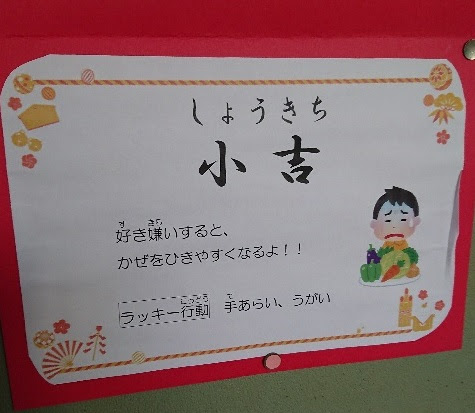 しょうきち
小吉
好き嫌いすると、
かぜをひきやすくなるよ!!
ラッキー行動 手あらい、うがい